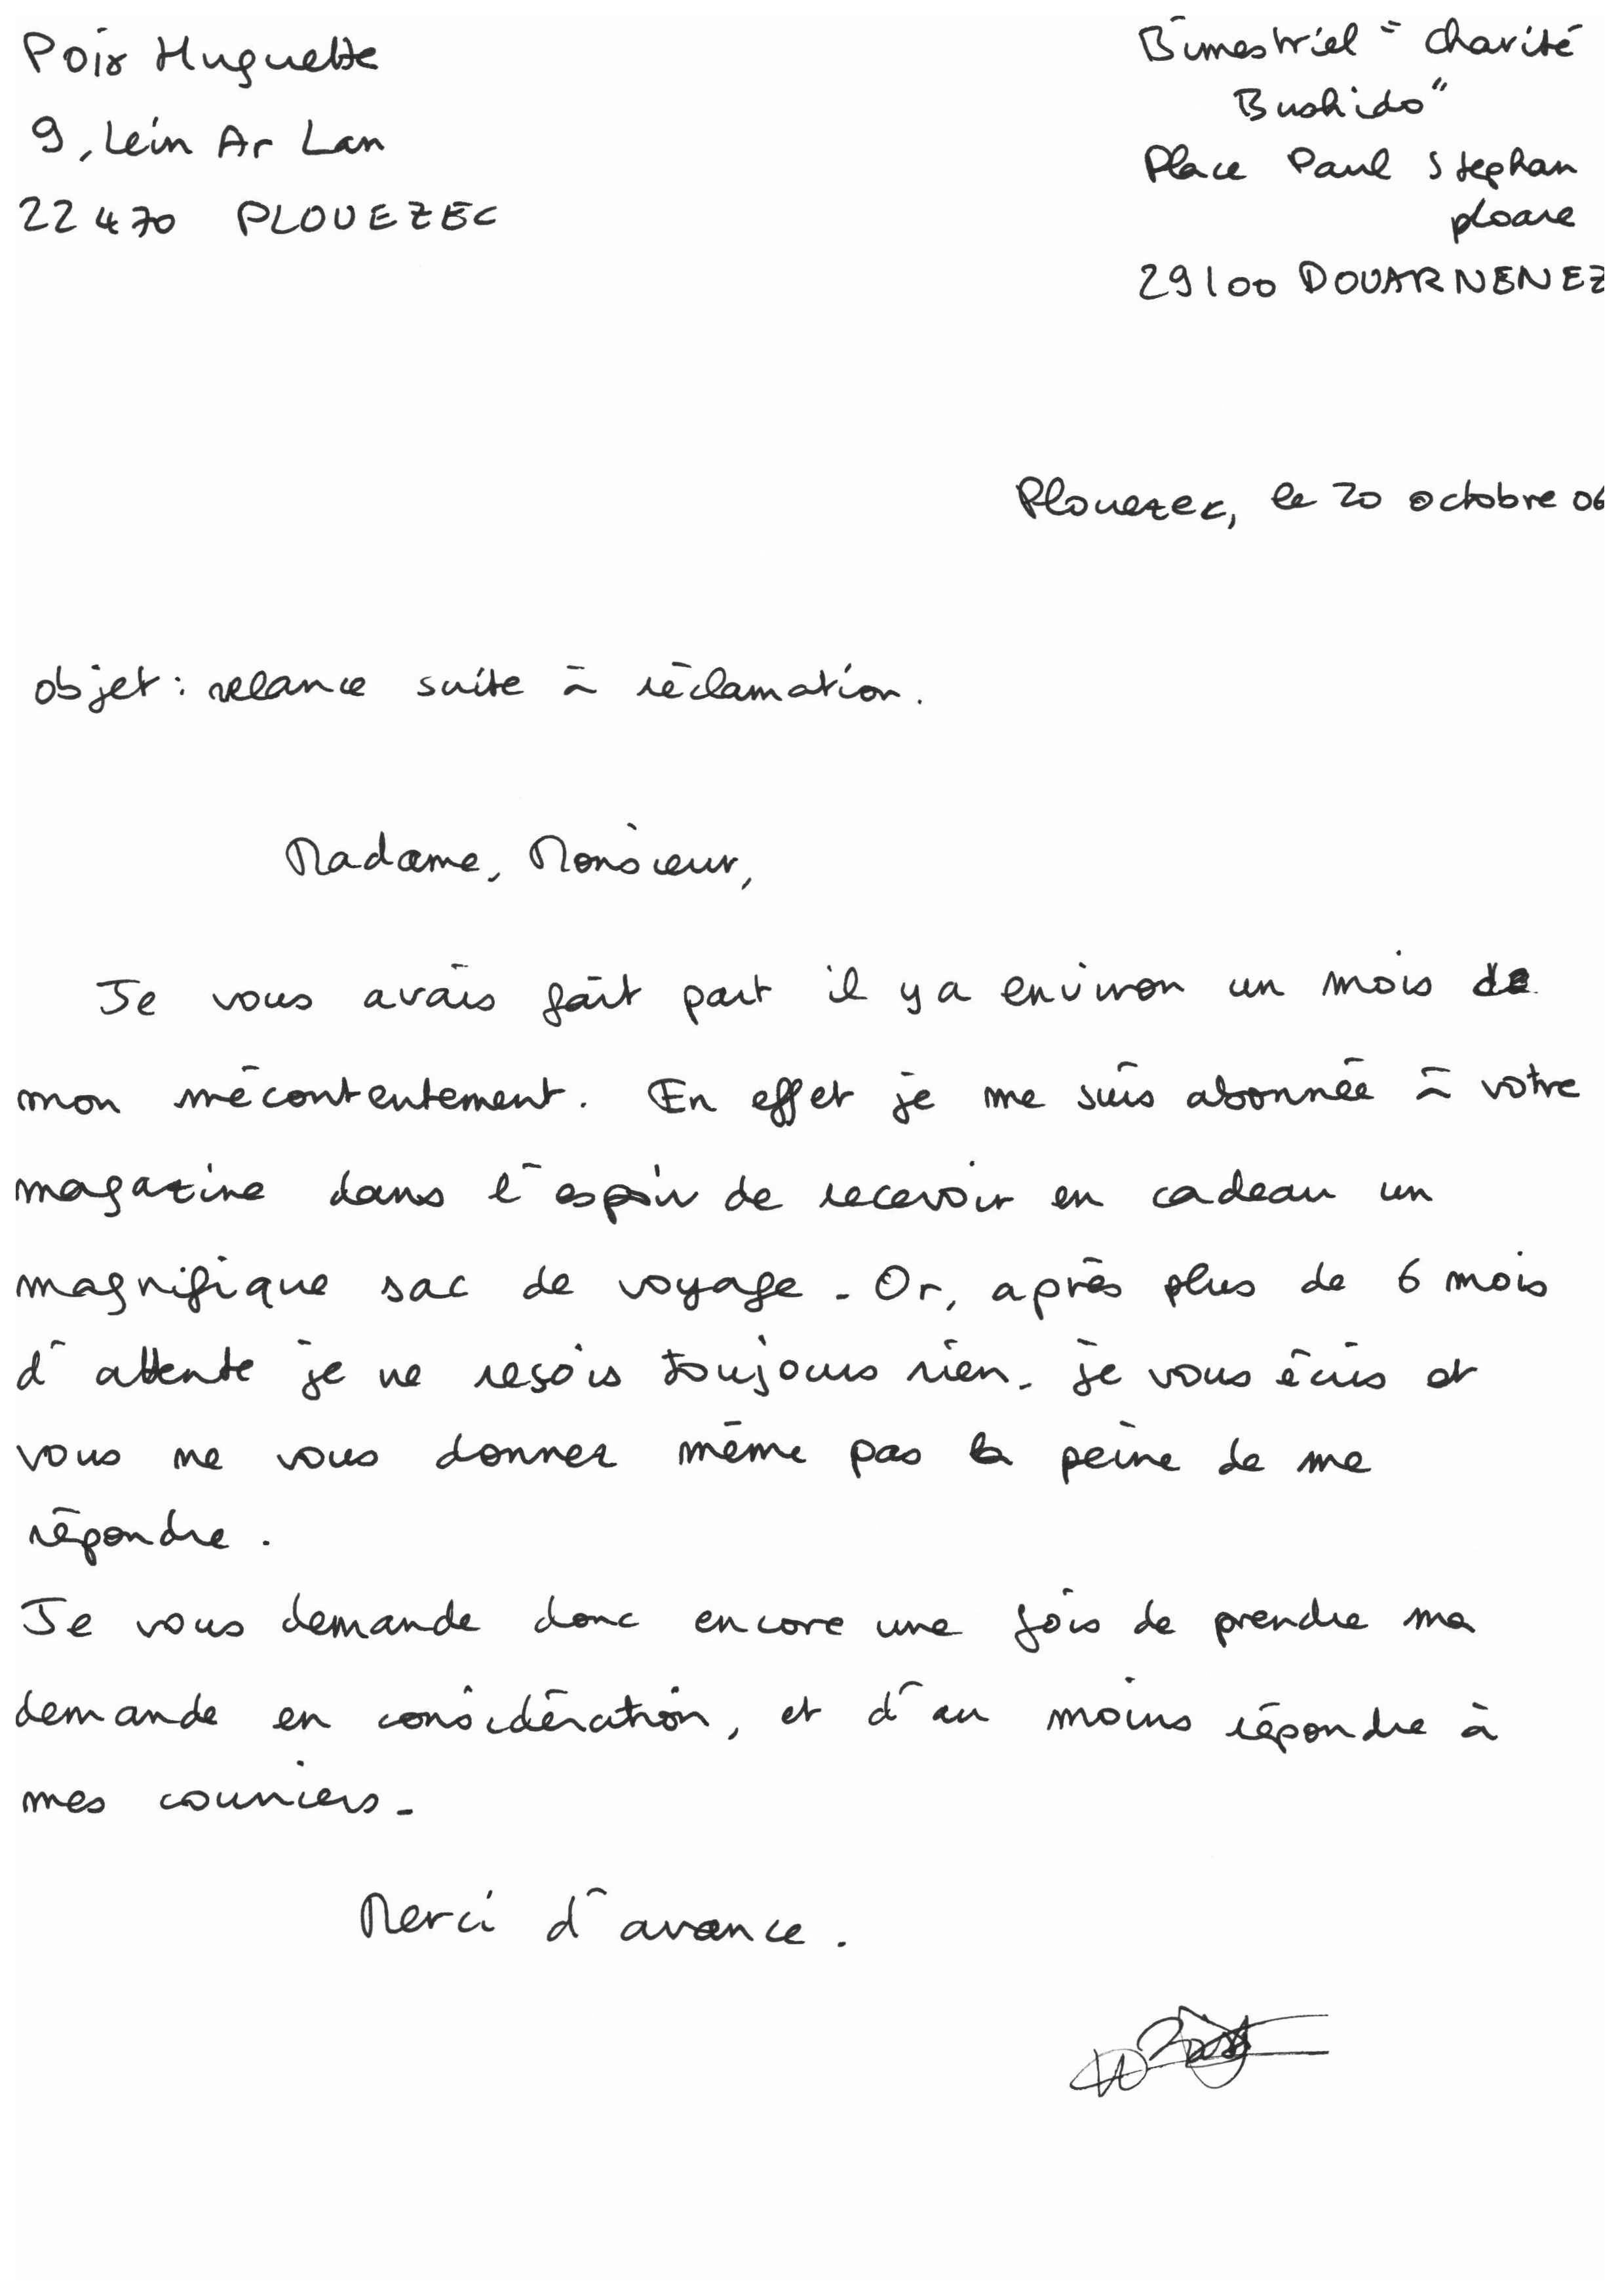 Poix Huguette
9, Lein Ar Lan
22470 PLOUEZEC
Bimestriel "charité
Bushido"
Place Paul Stephan
ploare
29100 DOUARNENEZ
Plouezec, le 20 octobre 06
objet : relance suite à réclamation.
Madame, Monsieur,
Je vous avais fait part il y a environ un mois de
mon mécontentement. En effet je me suis abonnée à votre
magazine dans l'espoir de recevoir en cadeau un
magnifique sac de voyage. Or, après plus de 6 mois
d'attente je ne reçois toujours rien. je vous écris et
vous ne vous donnez même pas la peine de me
répondre.
Je vous demande donc encore une fois de prendre ma
demande en considération, et d'au moins répondre à
mes courriers.
Merci d'avance.